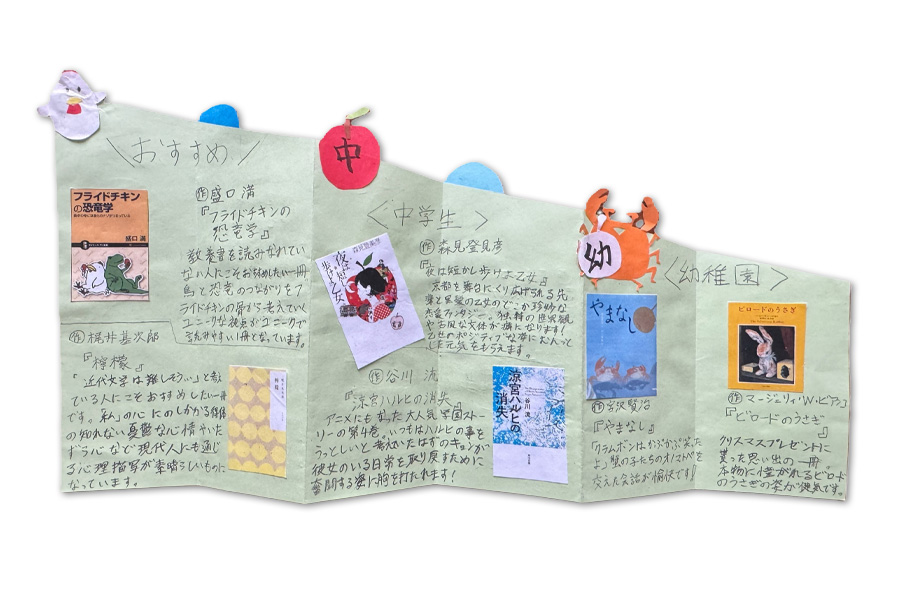 おすすめ
フライドチキン
の恐竜学
盛口 満
作 盛口 満
『フライドチキンの
恐竜学』
教養書を読みなれてい
ない人にこそお勧めしたい一冊
鳥と恐竜のつながりをフ
ライドチキンの骨から考えていく
ユニークな視点がユニークで
読みやすい1冊となっています。
作 梶井基次郎
『檸檬』
「近代文学は難しそう…」と考え
ている人にこそおすすめしたい一冊
です。「私」の心にのしかかる得体
の知れない憂鬱な心情やいた
ずら心などで現代人にも通じ
る心理描写が素晴らしいものに
なっています。
檸檬
中
<中学生>
森見登美彦
夜は短し
歩けよ乙女
作 森見登美彦
『夜は短かし歩けよ乙女』
京都を舞台にくり広げられる先
輩と黒髪の乙女のどこか珍妙な
恋愛ファンタジー。独特の世界観
や古風な文体が癖になります!
乙女のポジティブな姿になんっと
した元気をもらえます。
作 谷川 流
『涼宮ハルヒの消失』
アニメにもなった大人気学園ストー
リーの第4巻。いつもはハルヒの事を
うっとしいと考えていたはずのキョンが
彼女のいる日常を取り戻すために
奮闘する姿に胸を打たれます!
涼宮ハルヒの
消失
谷川 流
幼
<幼稚園>
やまなし
作 宮沢賢治
『やまなし』
「クラムボンはかぷかぷ笑った
よ」蟹の子たちのオノマトペを
交えた会話が愉快です!
ビロードのうさぎ
作 マージェリィ・W・ビアンコ
『ビロードのうさぎ
』
クリスマスプレゼントに
貰った思い出の一冊。
本物に憧がれるビロード
のうさぎの姿が健気です。